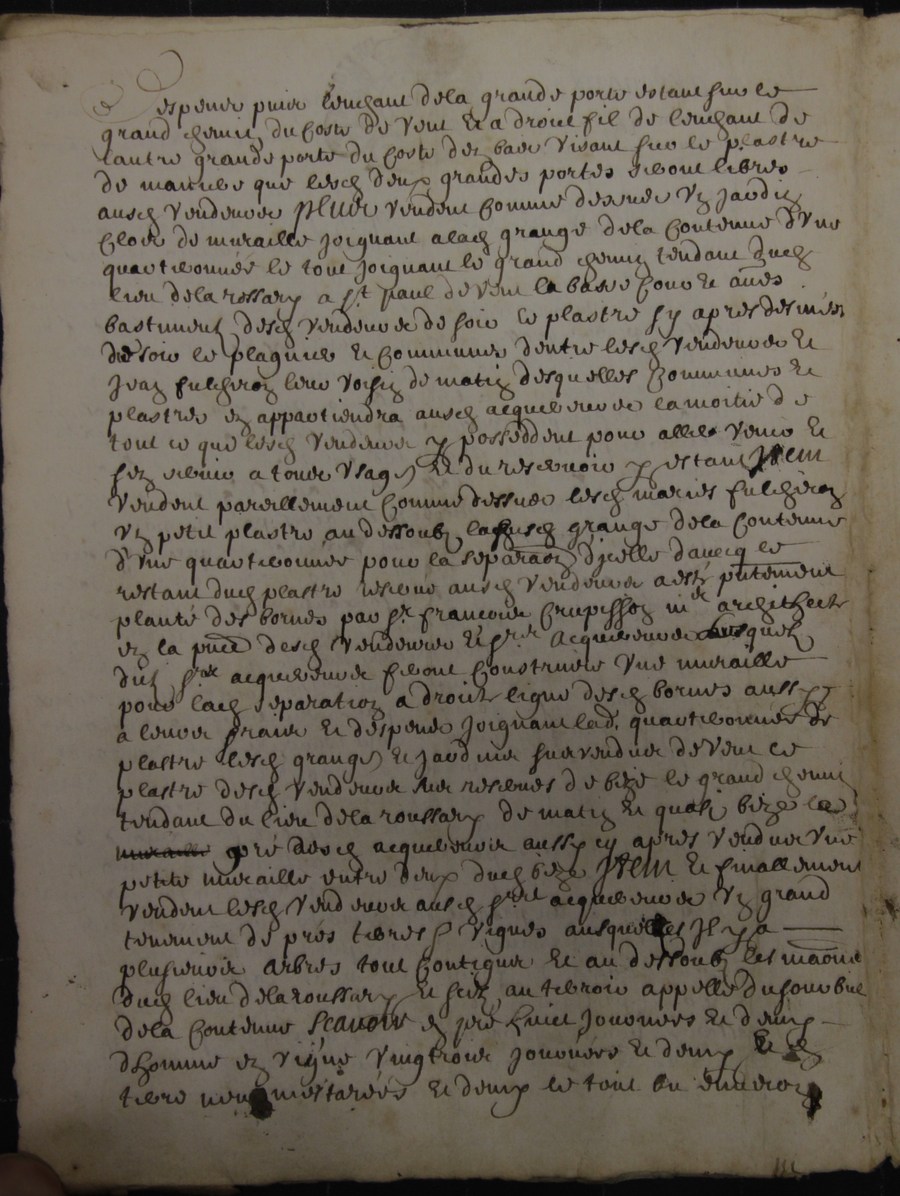 despence puis lenchant dela grande porte estant sur le
grand chemin du coste de vent Et a droict fil de lenchant de
lautre grande porte du coste de bize visant sur le plastre
de maniere que lesd deux grandes portes seront libres
ausd vendeurs Plus vendent comme dessus un jardin
clos de muraille joignant a lad grange dela contenue d'une
quarteronnée le tout joignant le grand chemin tendant dud
lieu dela rossary a St paul de vent la basse cour et aues
bastiment desd vendeurs de soir le plastre sy apres
de soir le et communes dentre lesd vendeurs et
Jean fulchiron leur voisin de matin desquelles communes et
plastres en appartiendra ausd acquereurs la moitié de
tout ce que lesd vendeurs y possedent pour aller venir et
sen servir a tous usages Et du reservoir y estant Item
vendent pareillement comme dessus lesd maries fulchiron
un petit plastre au dessoubz lasusd grange dela contenue
d'une quarteronnée pour la separaon dicelle dauecq le
restant dud plastre reserué ausd vendeurs a esté
planté des bornes par Sr francois Crepisson mr architecte
en la pnce desd vendeurs et Sr acquereurs
dits Srs acquereurs feront construire une muraille
pour lad separation a droite ligne desd bornes aussy
a leurs fraix et despens joignant lad. quarteronnée de
plastre lesd grange et jardin survendus de vent le
plastre desd vendeurs sus reserués de bize le grand chemin
tendant du lieu dela roussary de matin et quasi bize le
pré desd acquereurs aussy cy apres vendus une
petite muraille entre deux dud bize Item et finallement
vendent lesd vendeurs ausd Srs acquereurs un grand
tenement de pres terres & vignes ausquelles il y a
plusieurs arbres tout contigue et au dessoubz les maons
dud lieu dela roussary et sriz au terroir appellé du sourbier
dela contenue Scavoir en pré huict journées et demy
dhomme en vigne vingtrois journées et demy Et en
terre neuf mestarées et demy le tout ou enuiron